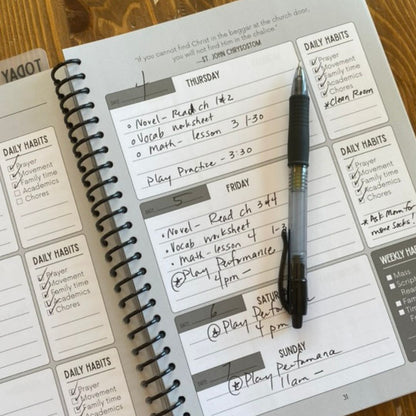 TODAY
"If you cannot find Christ in the beggar at the church door,
you will not find Him in the chalice."
—ST. JOHN CHRYSOSTOM
DATE 4 THURSDAY
Novel - Read ch 1 & 2
Vocab worksheet
Math - lesson 3 1-30
Play Practice - 3:30
DAILY HABITS
Prayer
Movement
Family time
Academics
Chores
*Clean Room
DATE 5 FRIDAY
Novel - Read ch 3 & 4
Vocab worksheet
Math - lesson 4
Play Performance
4 pm -
DAILY HABITS
Prayer
Movement
Family time
Academics
Chores
*Ask Mom for
more socks!
DATE 6 SATURDAY
Play Performance
4 pm -
DATE 7 SUNDAY
Play Performance
11am -
WEEKLY
Mass
31
DAILY HABITS
Prayer
Movement
Family time
Academics
Chores
DAILY HABITS
Prayer
Movement
Family time
Academics
Chores
DAILY HABITS
Prayer
Movement
Family time
Academics
Chores